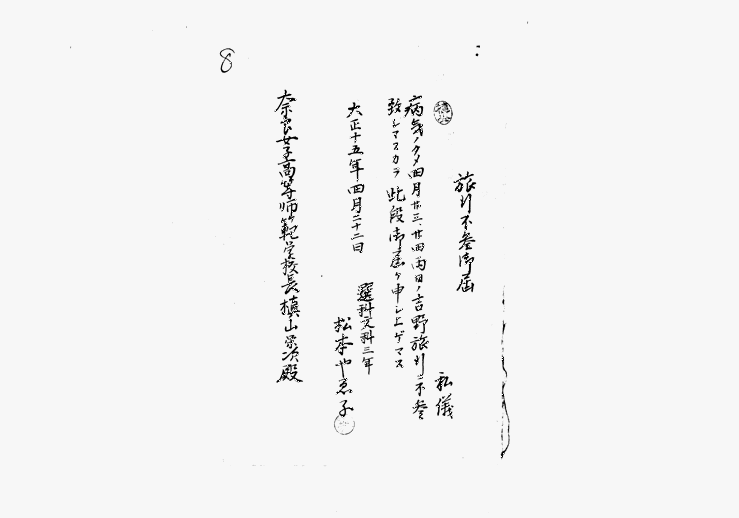 8
旅行不参御届
私儀
病気ノタメ四月廿三、廿四両日ノ吉野旅行ニ不参
致シマスカラ此段御届ケ申シ上ゲマス
大正十五年四月二十二日
選科文科三年
松本やゑ子
奈良女子高等師範学校長槙山栄次殿